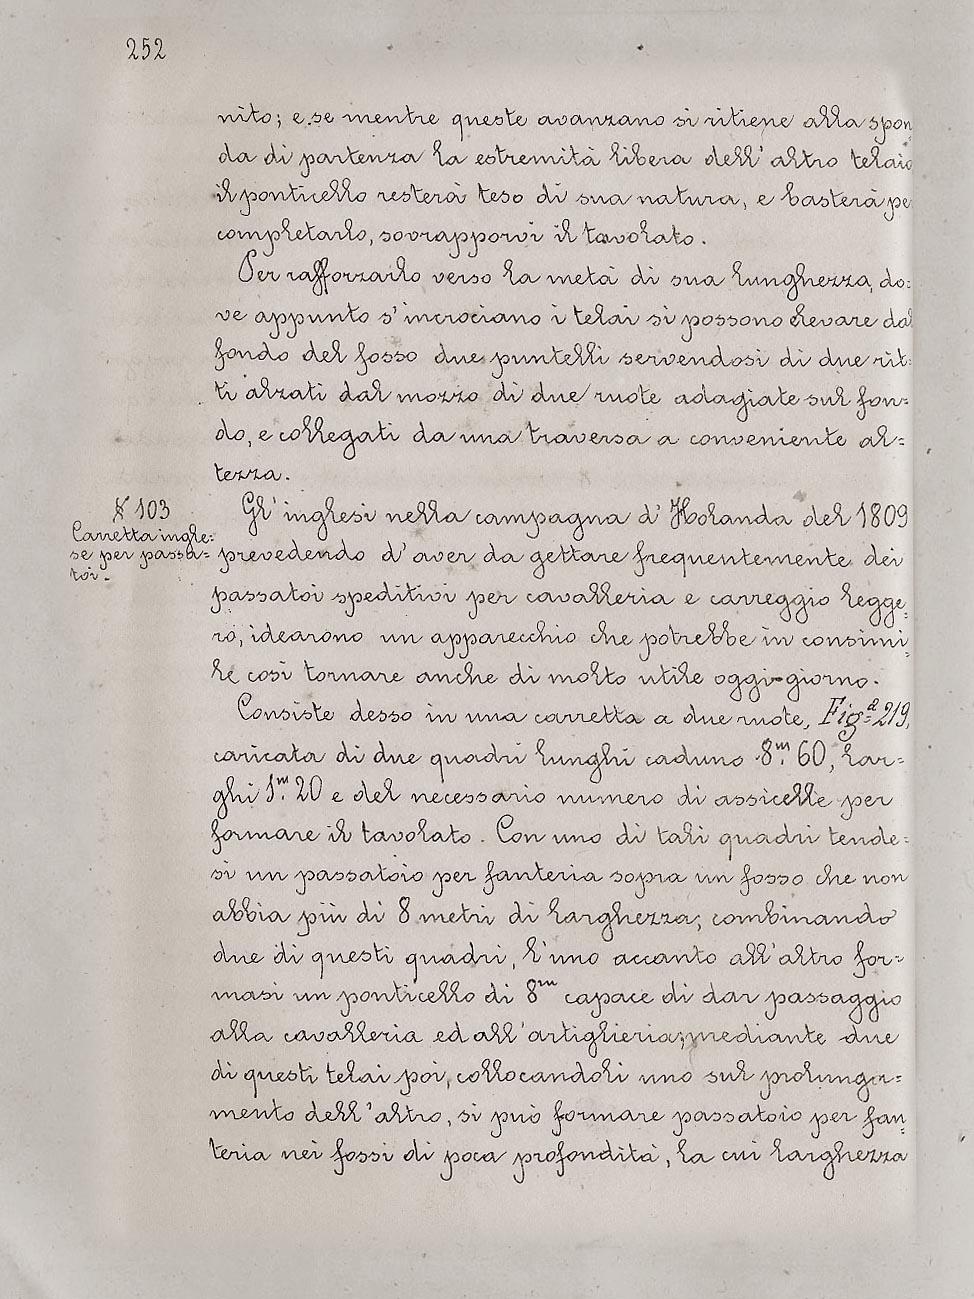 252
nito; e se mentre queste avanzano si ritiene alla spon
da di partenza la estremità libera dell'altro telaio
il ponticello resterà teso di sua natura, e basterà pe
completarlo, sovrapporvi il tavolato.
Per rafforzarlo verso la metà di sua lunghezza, do=
ve appunto s'incrociano i telai si possono levare dal
fondo del fosso due puntelli servendosi di due rit=
ti alzati dal mozzo di due ruote adagiate sul fon=
do, e collegati da una traversa a conveniente al=
tezza.
§ 103
Carretta ingle=
se per passa=
toi.
Gl'inglesi nella campagna d'Holanda del 1809
prevedendo d'aver da gettare frequentemente dei
passatoi speditivi per cavalleria e carreggio legge=
ro, idearono un apparecchio che potrebbe in consimi=
le così tornare anche di molto utile oggi-giorno.
Consiste desso in una carretta a due ruote, Fig.ª 219,
caricata di due quadri lunghi caduno 8.m 60, lar=
ghi 1.m 20 e del necessario numero di assicelle per
formare il tavolato. Con uno di tali quadri tende=
si un passatoio per fanteria sopra un fosso che non
abbia più di 8 metri di larghezza; combinando
due di questi quadri, l'uno accanto all'altro for=
masi un ponticello di 8m capace di dar passaggio
alla cavalleria ed all'artiglieria; mediante due
di questi telai poi, collocandoli uno sul prolunga=
mento dell'altro, si può formare passatoio per fan=
teria nei fossi di poca profondità, la cui larghezza